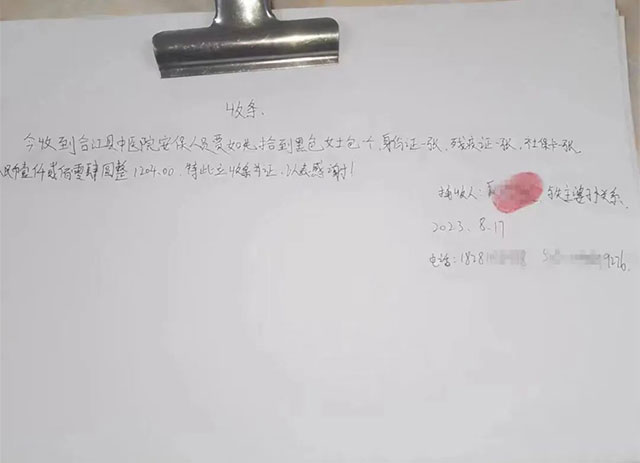 收条.
今收到台江县中医院安保人员爱如先拾到黑色女士包个,身份证一张,残疾证一张,社保卡一张,
民币壹仟贰佰零肆圆整1204.00.特此立收条为证,以表感谢!
接收人:
2023.8.17
电话:1828 9226